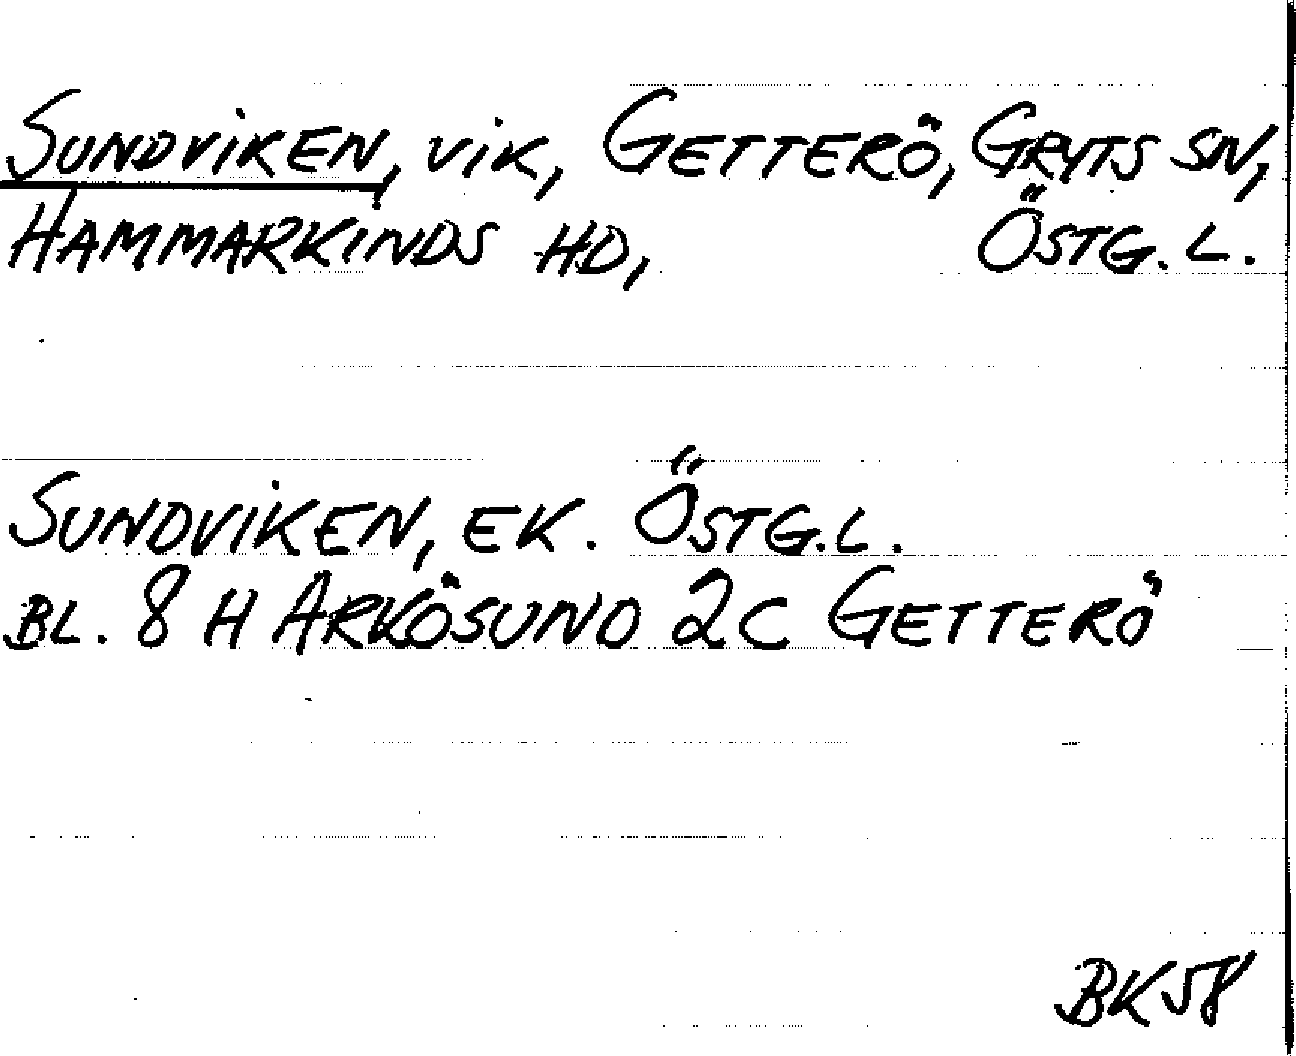 SUNDVIKEN, VIK, GETTERÖ, GRYTS SN,
HAMMARKINDS HD, ÖSTG. L.
SUNDVIKEN, EK. ÖSTG. L.
BL. 8 H ARKÖSUND 2C GETTERÖ
BK58